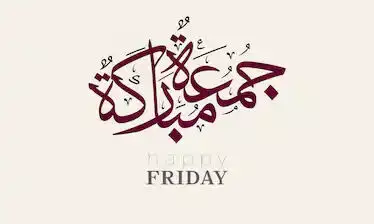 جُمُعَة مُبَارَكَةٌ
happy
FRIDAY